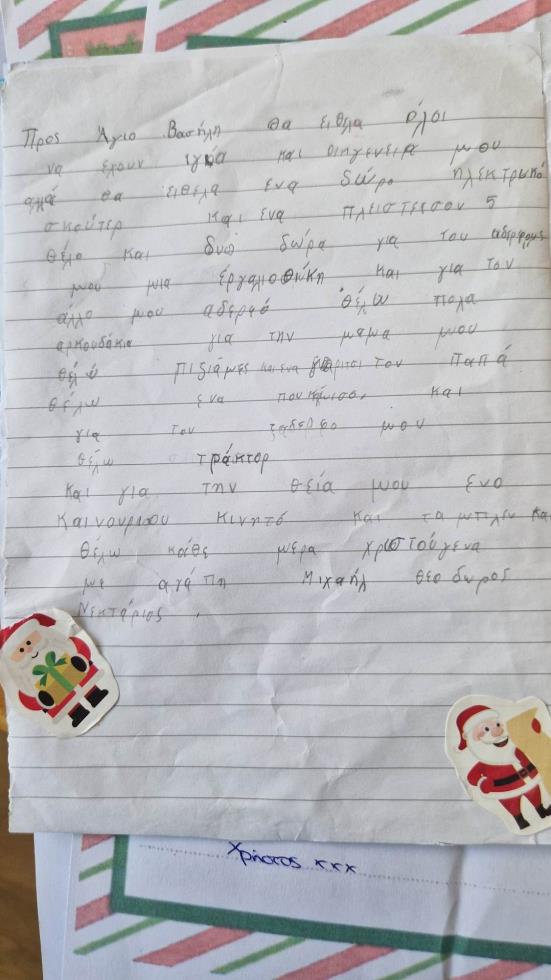 Προς Άγιο Βασήλη θα ειθελα όλοι
να εχουν ιγία και οιηγενεια μου
αλλά θα ειθελα ενα δώρο ηλεκτρικό
σκούτερ και ενα πλειστεσον 5
θέλο και δυο δωρα για του αδερφους
μου μια εργαλιοθύκη και για τον
άλλο μου αδερφό θέλω πολα
αρκουδάκια για την μαμα μου
θέλω πιζιάμες και ενα τον Παπά
θέλω ενα πουκάμισο, και
για τον ξαδερφο μου
θέλω τράκτορ
και για την θεία μου ενα
καινουριου κινητό και τα μπλεν και
θέλω κάθε μερα χριστούγενα
με αγάπη Μιχαήλ θεοδωρος
Νεκτάριος.
Χρήστος xxx